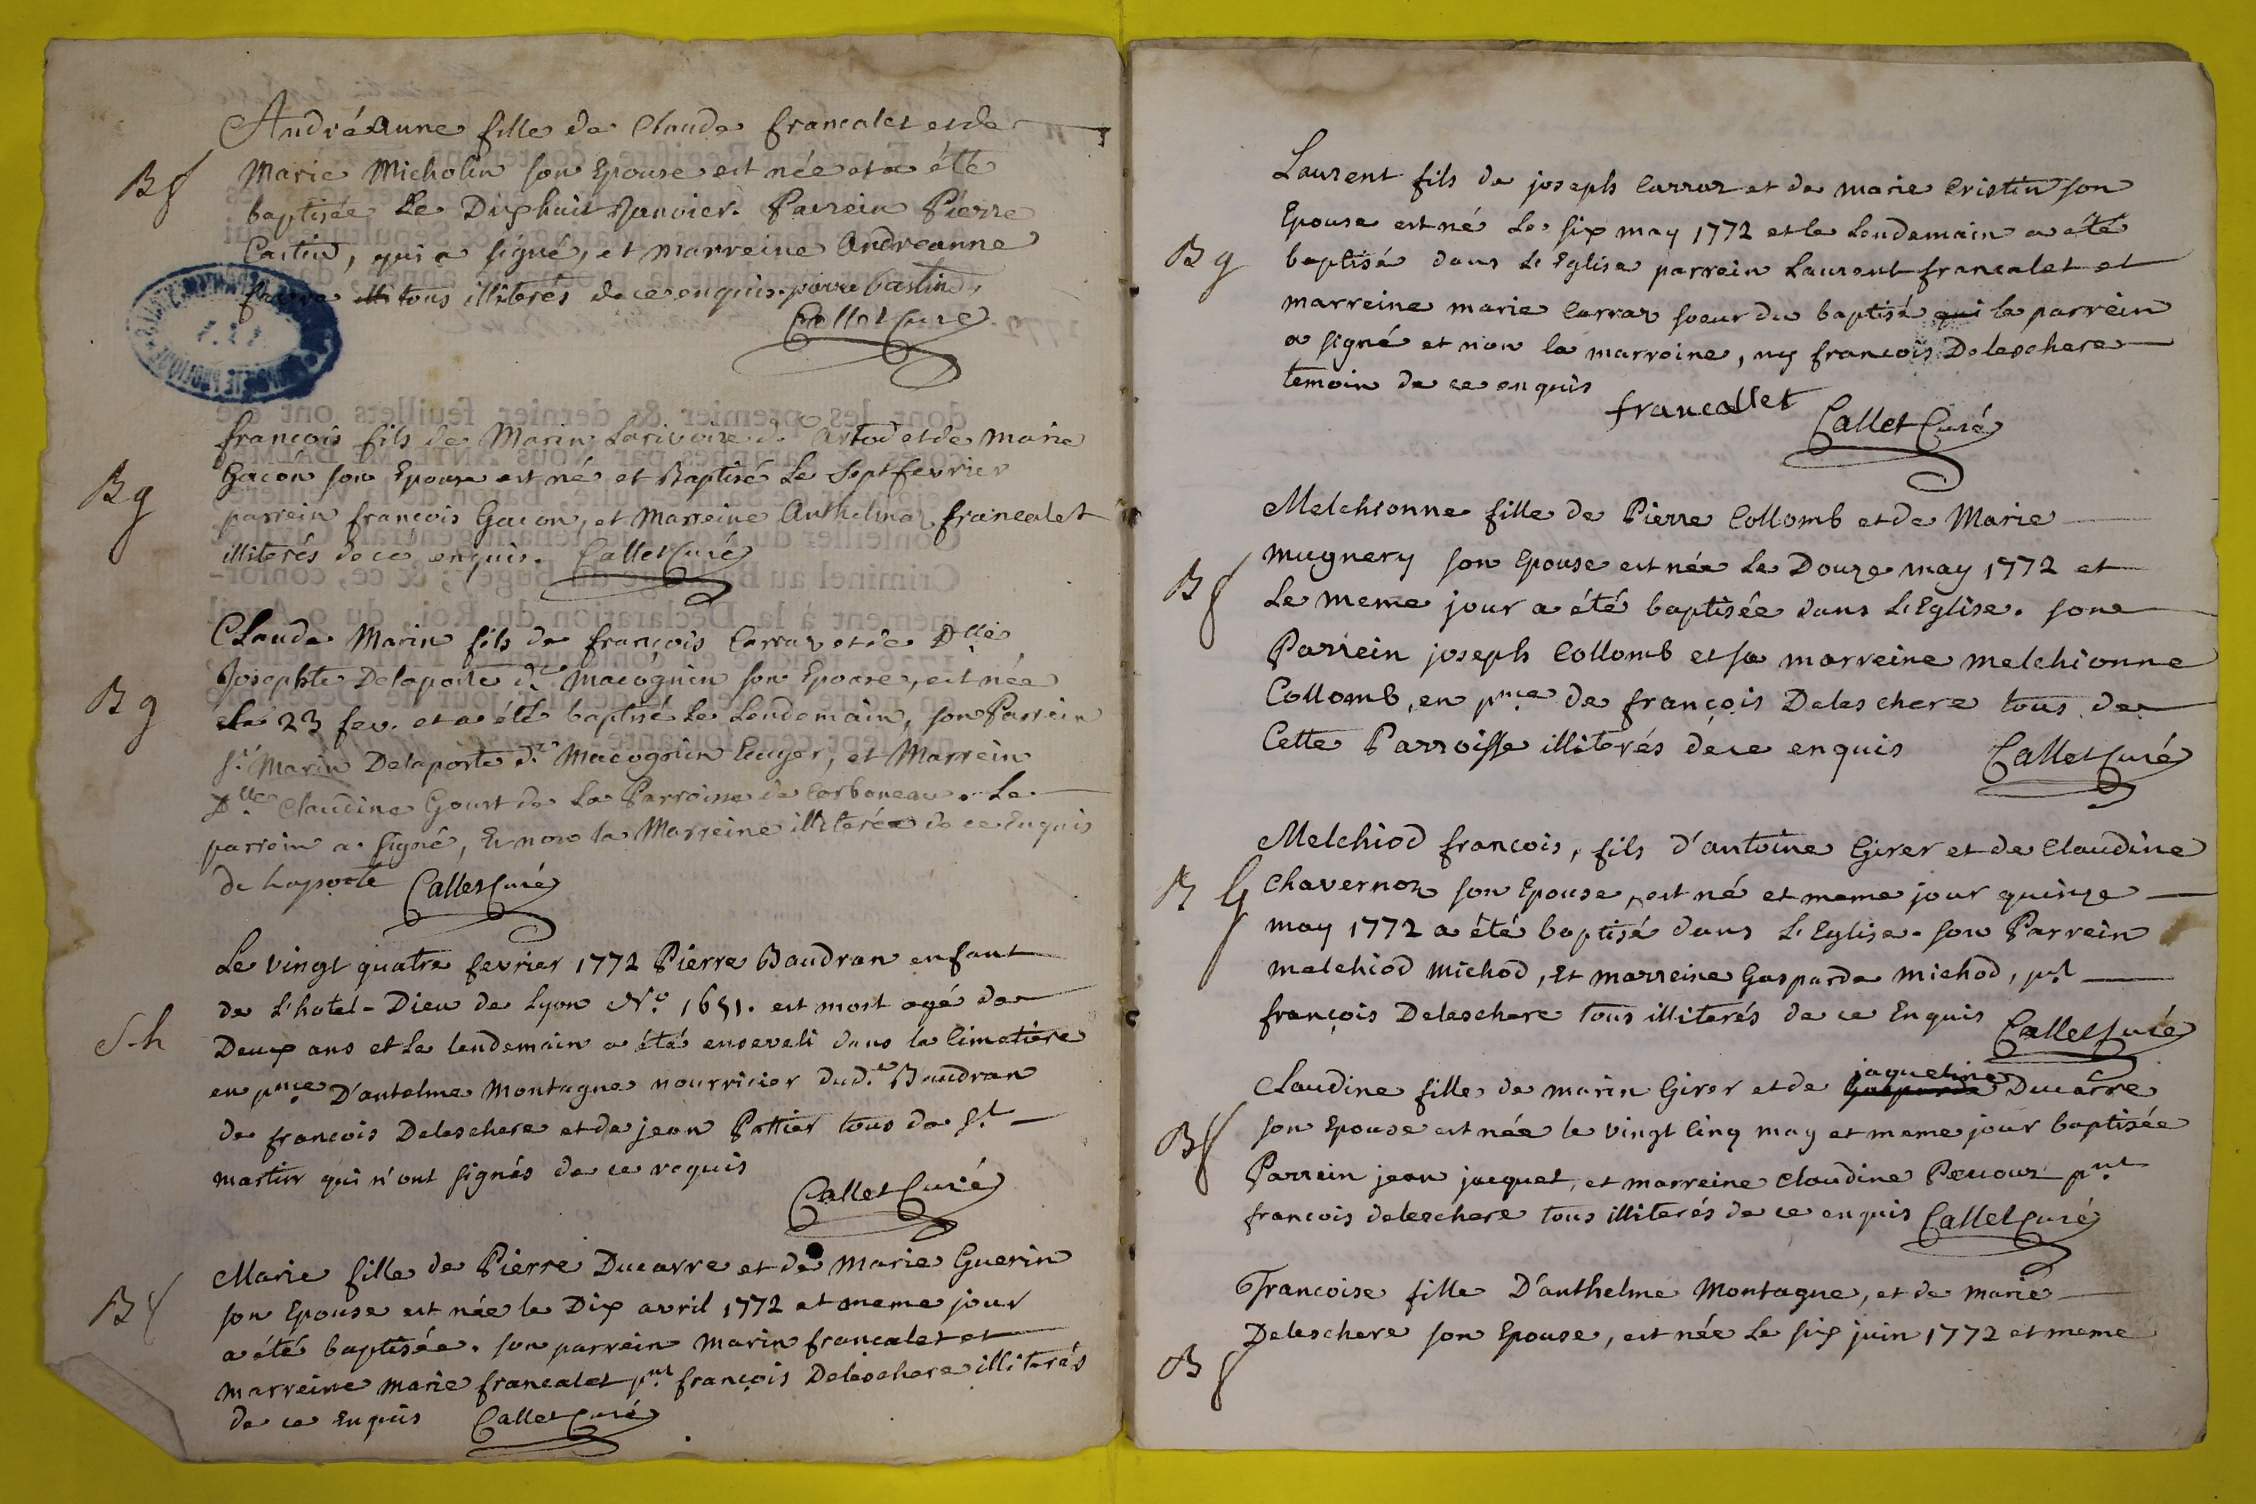 Andréanne fille de Claude francalet et de
Bf
Marie Micholin son Epouse est née et a été
baptisée Le Dixhuit Janvier. Parrein Pierre
Castin, qui a signé, et marreine Andreanne
tous illiterés de ce enquis. pierre castin
Callet Curé
françois fils de Marin Larivoire d. Artod et de marie
Bg
Gacon son Epouse est né et Baptisé Le Sept fevrier
parrein françois Gacon, et Marreine Anthelma francalet
illiterés de ce enquis. Callet Curé
Claude Marin fils de françois Carraz et de Dlle
Josephte Delaporte d. Macognin son Epouse, est née
Bg
Le 23 fev. et a été baptisé Le Lendemain, son Parrein
sr Marin Delaporte d. Macognin Ecuyer, et Marrein
Dlle Claudine Gourt de La Parroisse de Corboneau. Le
parrein a signé, Et non la Marreine illiterée de ce Enquis
de Laporte Callet Curé
Le vingt quatre fevrier 1772 Pierre Baudran enfant
de L'hotel-Dieu de Lyon No 1651. est mort agé de
S-h
Deux ans et Le lendemain a été enseveli dans la Cimetière
en pnce D'antelme Montagne nourricier dud. Baudran
de françois Deleschere et de jean Pottier tous de St
martin qui n'ont signés de ce requis
Callet Curé
Marie fille de Pierre Ducarre et de Marie Guerin
Bf
son Epouse est née le Dix avril 1772 et meme jour
a été baptisée. son parrein Marin francalet et
marreine marie francalet pnt françois Deleschere illiterés
de ce Enquis Callet Curé
Laurent fils de joseph Carraz et de marie Cristin son
Epouse est né Le six may 1772 et le Lendemain a été
Bg
baptisé dans L'Eglise parrein Laurent francalet et
marreine marie Carraz soeur du baptisé qui le parrein
a signé et non la marreine, ny françois Deleschere
temoin de ce enquis
francallet Callet Curé
Melchionne fille de Pierre Collomb et de Marie
Bf
mugnery son Epouse est née Le Douze may 1772 et
Le meme jour a été baptisée dans L'Eglise. son
Parrein joseph Collomb et sa marreine melchionne
Collomb, en pnce de françois Deleschere tous de
Cette Parroisse illiterés de ce enquis Callet Curé
Melchiod françois, fils d'antoine Girer et de Claudine
B G
Chavernoz son Epouse, est né et meme jour quinze
may 1772 a été baptisé dans L'Eglise. son Parrein
melchiod michod, Et marreine Gasparde michod, pnt
françois Deleschere tous illiterés de ce Enquis Callet Curé
Claudine fille de marin Girer et de Gasparde jaqueline Ducarre
Bf
son Epouse est née le vingt Cinq may et meme jour baptisée
Parrein jean jacquet, et marreine Claudine Perrouz pnt
françois deleschere tous illiterés de ce enquis Callet Curé
Francoise fille D'anthelme Montagne, et de marie
Bf
Deleschere son Epouse, est née Le six juin 1772 et meme